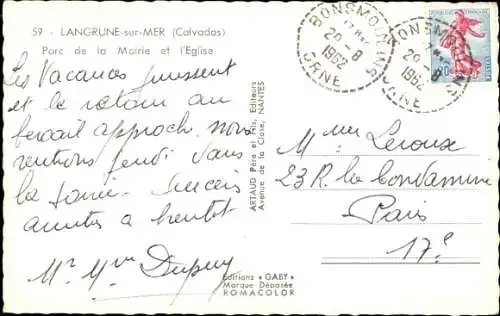 59 - LANGRUNE-sur-MER (Calvados)
Parc de la Mairie et l'Eglise
Les Vacances finissent
et le retour au
bercail approche nous
rentrons jeudi dans
la soirée
amitiés a bientot
Mr Mme Dupuy
ARTAUD Père et Fils, Editeurs
Avenue de la Close, NANTES
Editions "GABY"
Marque Déposée
ROMACOLOR
BONSMOULINS
20-8
1962
ORNE
BONSMOULINS
20-8
1962
ORNE
0,20
Mme Leroux
23 R. la Condamine
Paris
17e